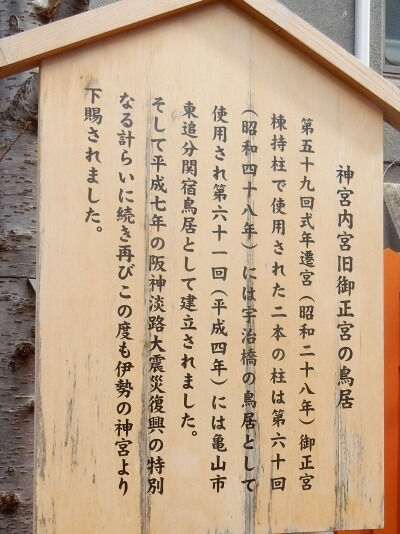 神宮内宮旧御正宮の鳥居
第五十九回式年遷宮(昭和二十八年)御正宮
棟持柱で使用された二本の柱は第六十回
(昭和四十八年)には宇治橋の鳥居として
使用され第六十一回(平成四年)には亀山市
東追分関宿鳥居として建立されました。
そして平成七年の阪神淡路大震災復興の特別
なる計らいに続き再びこの度も伊勢の神宮より
下賜されました。